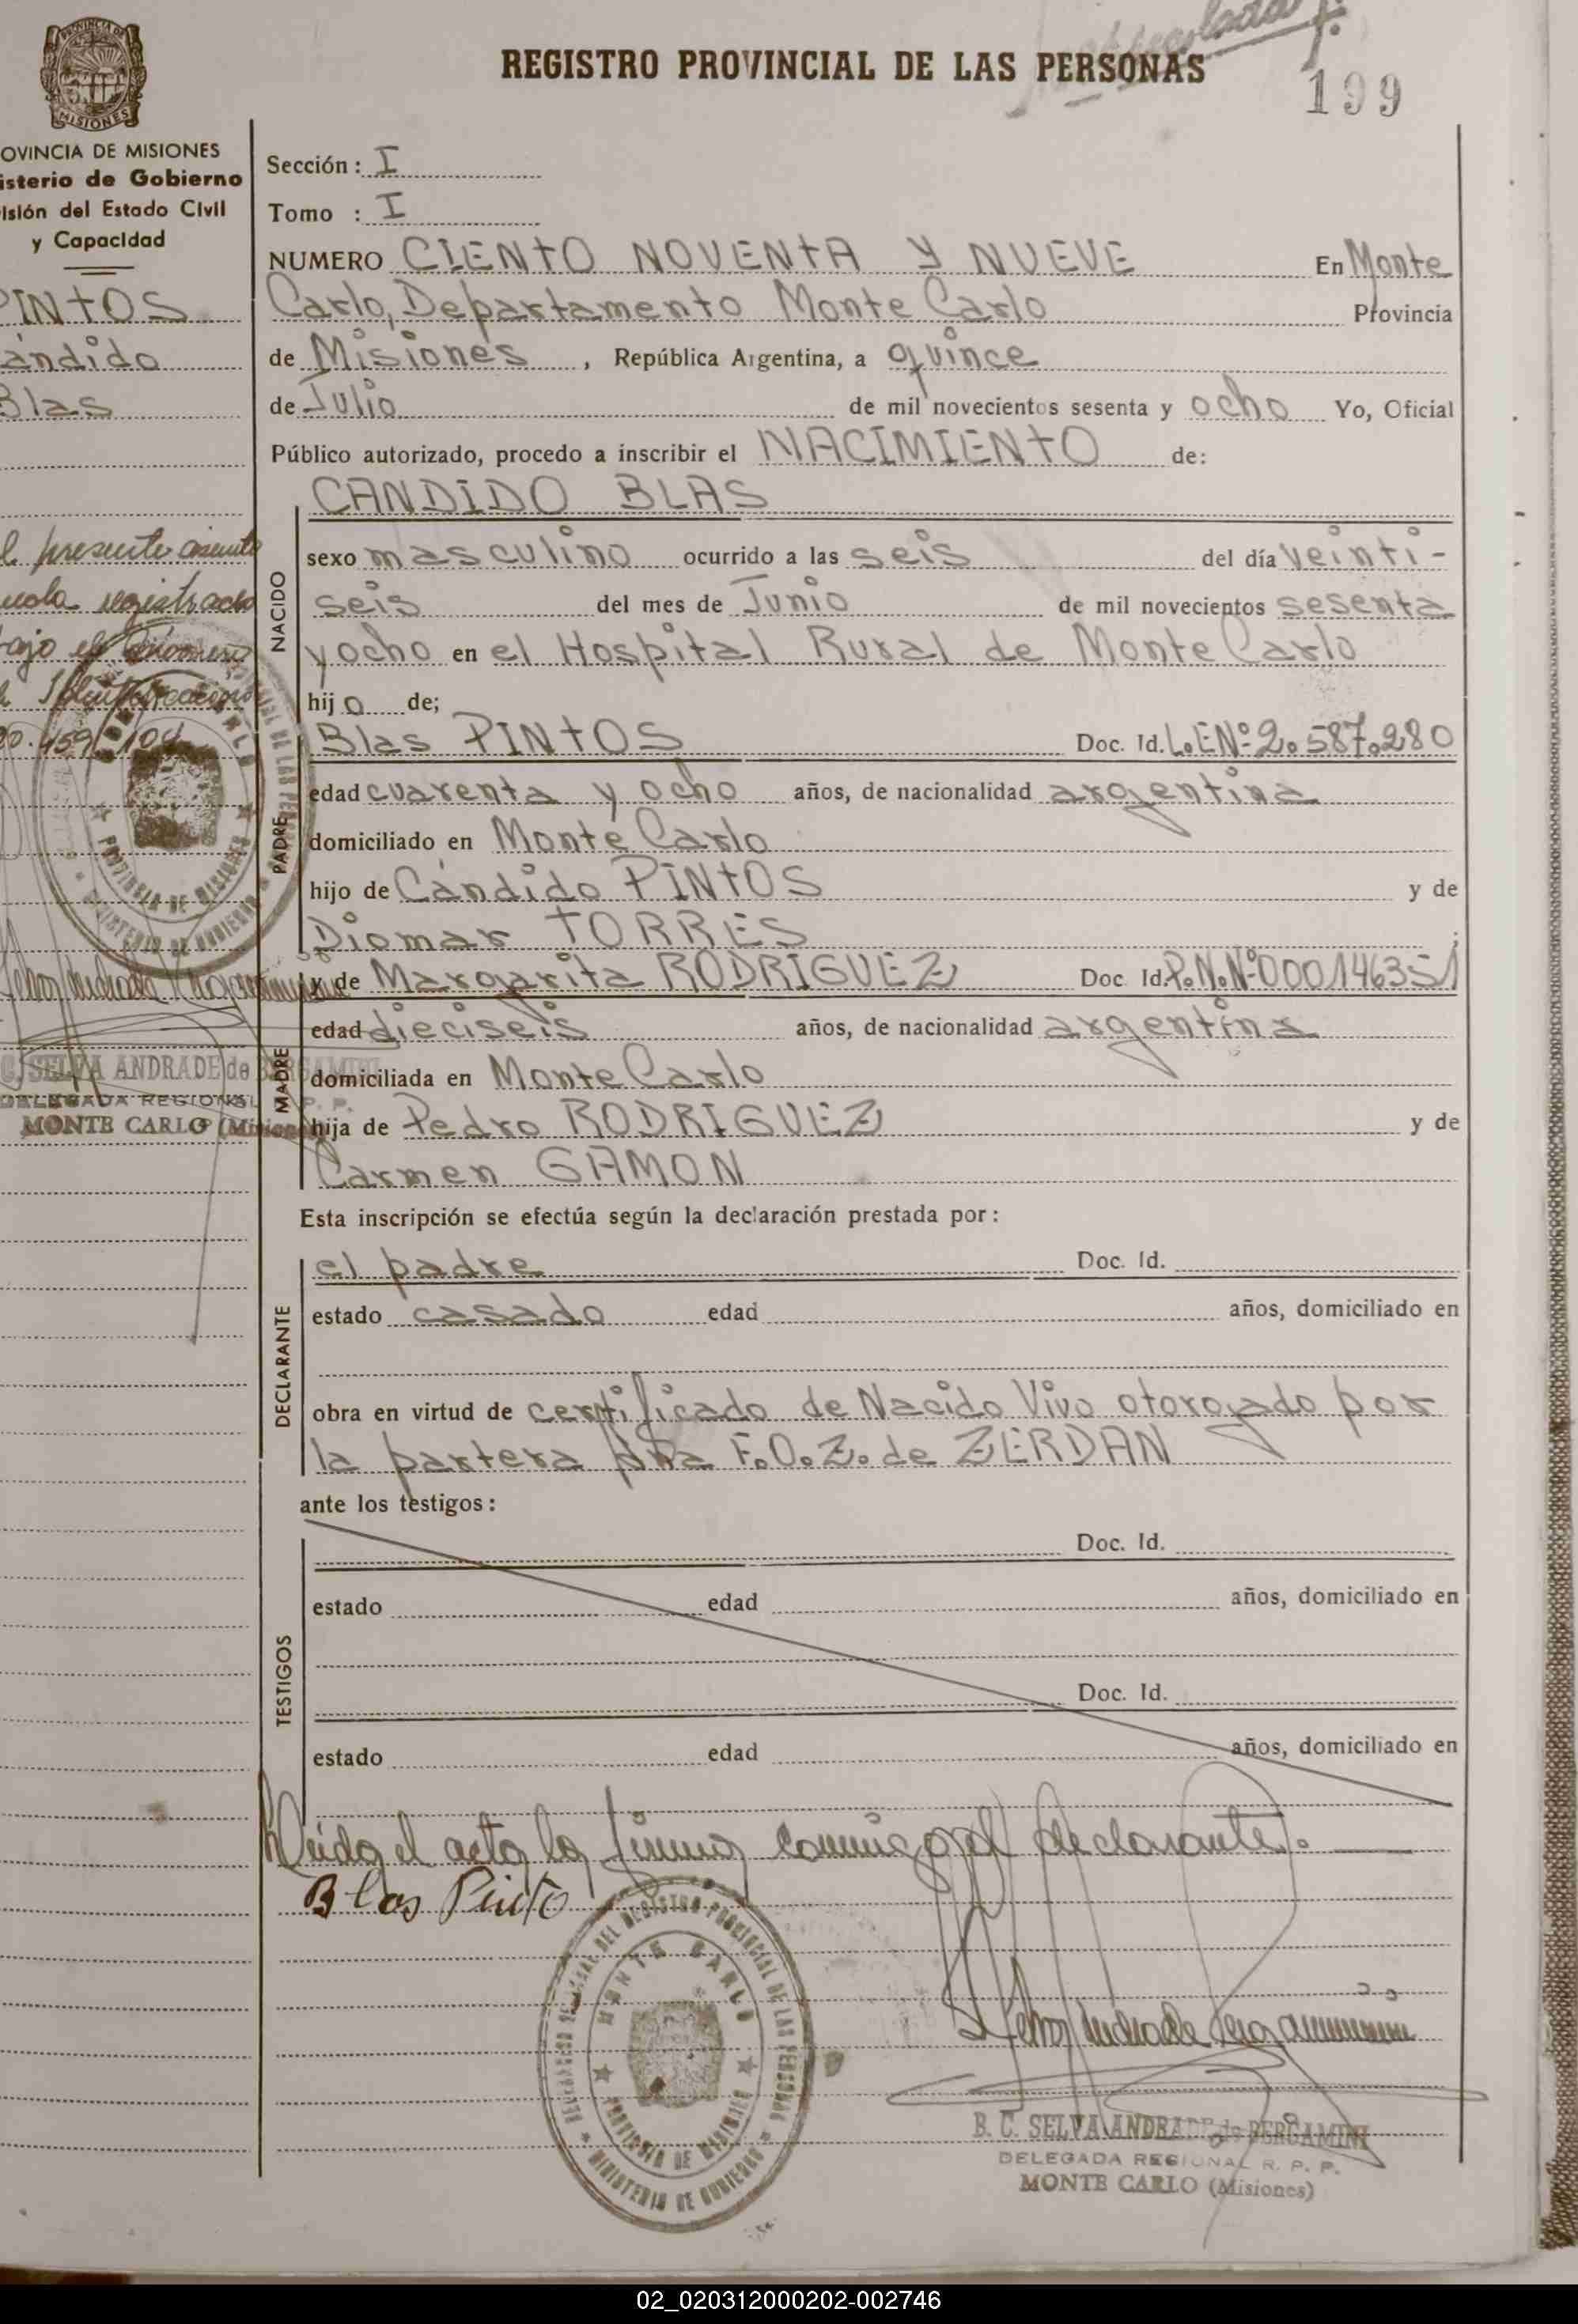 REGISTRO PROVINCIAL DE LAS PERSONAS
199
PROVINCIA DE
MISIONES
OVINCIA DE MISIONES
isterio de Gobierno
isión del Estado Civil
y Capacidad
PINTOS
ándido
Blas
l presente asiento
registrado
bajo el Número
20.459.104
C. SELVA ANDRADE de BERGAMINI
DELEGADA REGIONAL R. P. P.
MONTE CARLO (Misiones)
Sección : I
Tomo : I
NUMERO CIENTO NOVENTA Y NUEVE En Monte
Carlo, Departamento Monte Carlo Provincia
de Misiones , República Argentina, a quince
de Julio de mil novecientos sesenta y ocho Yo, Oficial
Público autorizado, procedo a inscribir el NACIMIENTO de:
CANDIDO BLAS
NACIDO
sexo masculino ocurrido a las seis del día veinti-
seis del mes de Junio de mil novecientos sesenta
y ocho en el Hospital Rural de Monte Carlo
hijo de;
PADRE
Blas PINTOS Doc. Id. L.E.Nº 2.587.280
edad cuarenta y ocho años, de nacionalidad argentina
domiciliado en Monte Carlo
hijo de Cándido PINTOS y de
Diomar TORRES
MADRE
y de Margarita RODRIGUEZ Doc Id. P.N.Nº 000146351
edad dieciseis años, de nacionalidad argentina
domiciliada en Monte Carlo
hija de Pedro RODRIGUEZ y de
Carmen GAMON
Esta inscripción se efectúa según la declaración prestada por:
DECLARANTE
el padre Doc. Id.
estado casado edad años, domiciliado en
obra en virtud de certificado de Nacido Vivo otorgado por
la partera Dña F.O.Z. de ZERDAN
ante los testigos:
TESTIGOS
Doc. Id.
estado edad años, domiciliado en
Doc. Id.
estado edad años, domiciliado en
Leída el acta la firma conmigo el declarante.
Blas Pinto
DEL REGISTRO PROVINCIAL DE LAS PERSONAS
MONTE CARLO
PROVINCIA DE MISIONES
MINISTERIO DE GOBIERNO
B. C. SELVA ANDRADE de BERGAMINI
DELEGADA REGIONAL R. P. P.
MONTE CARLO (Misiones)
02_020312000202-002746